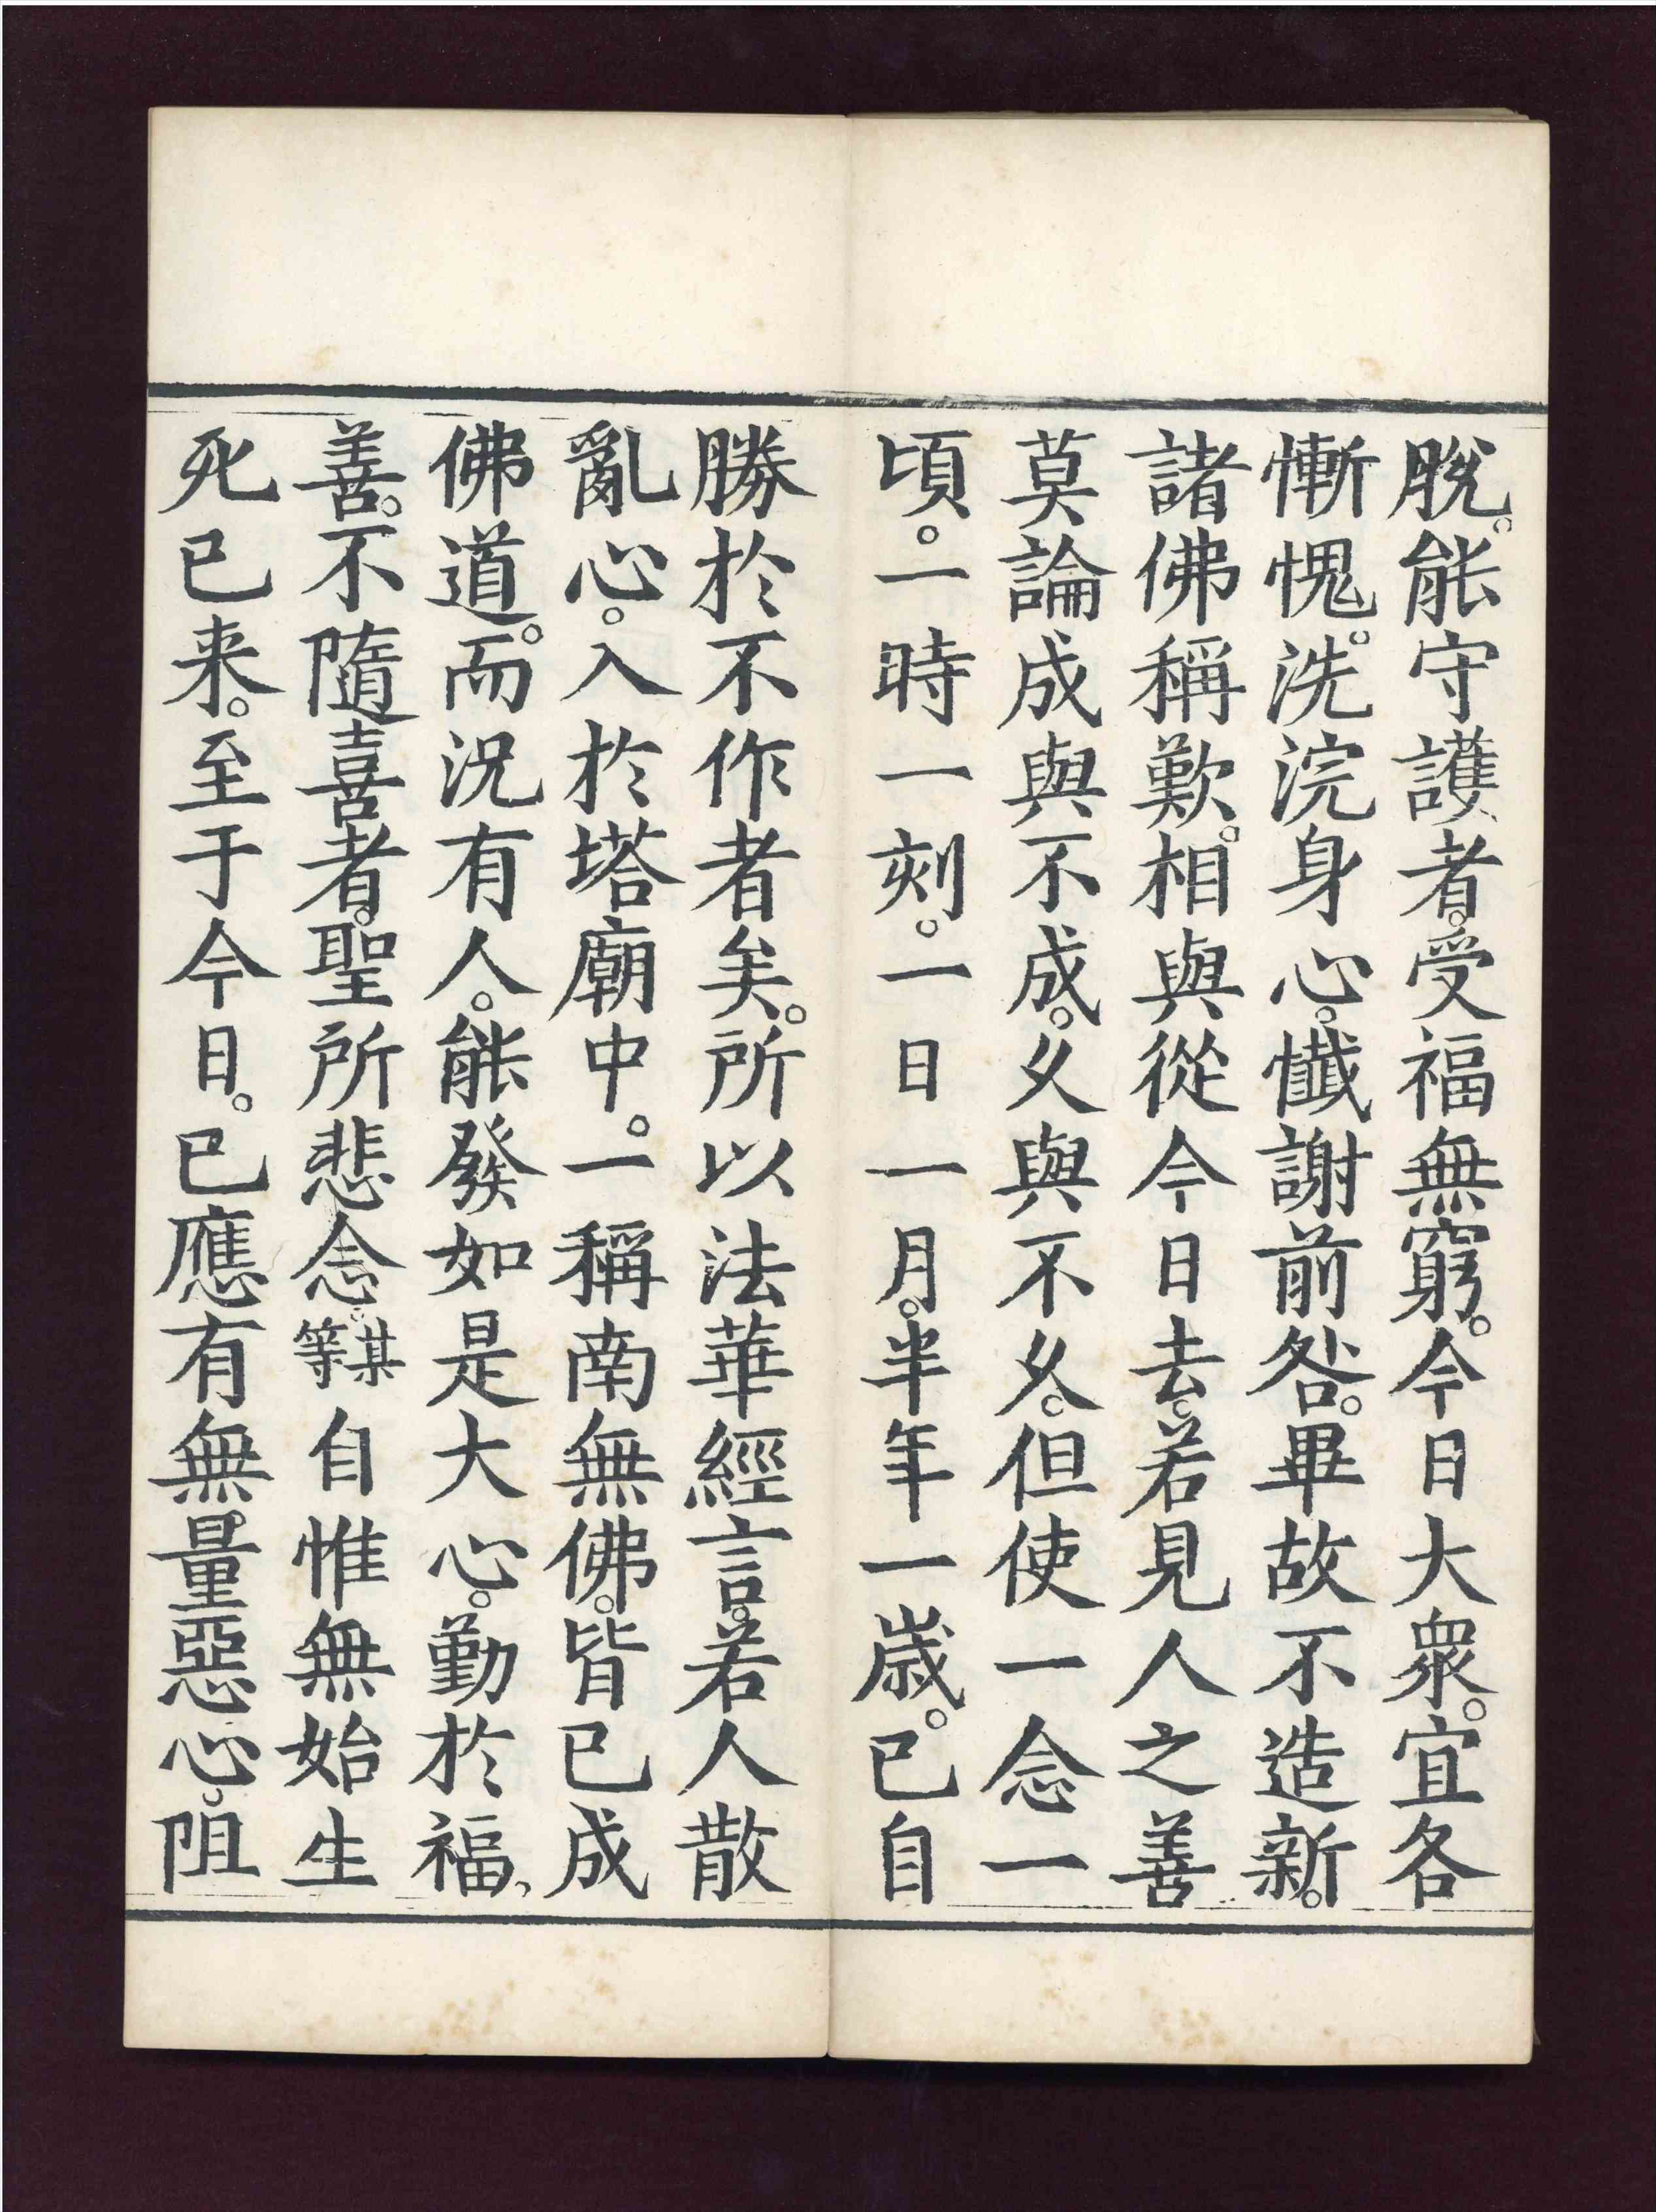 脫。能守護者。受福無窮。今日大衆。宜各
慚愧。洗浣身心。懺謝前咎。畢故不造新。
諸佛稱歎。相與從今日去。若見人之善
莫論成與不成。久與不久。但使一念一
頃。一時一刻。一日一月。半年一歲。已自
勝於不作者矣。所以法華經言。若人散
亂心。入於塔廟中。一稱南無佛。皆已成
佛道。而況有人。能發如是大心。勤於福、
善。不隨喜者。聖所悲念。某等自惟無始生
死已来。至于今日。已應有無量惡心。阻